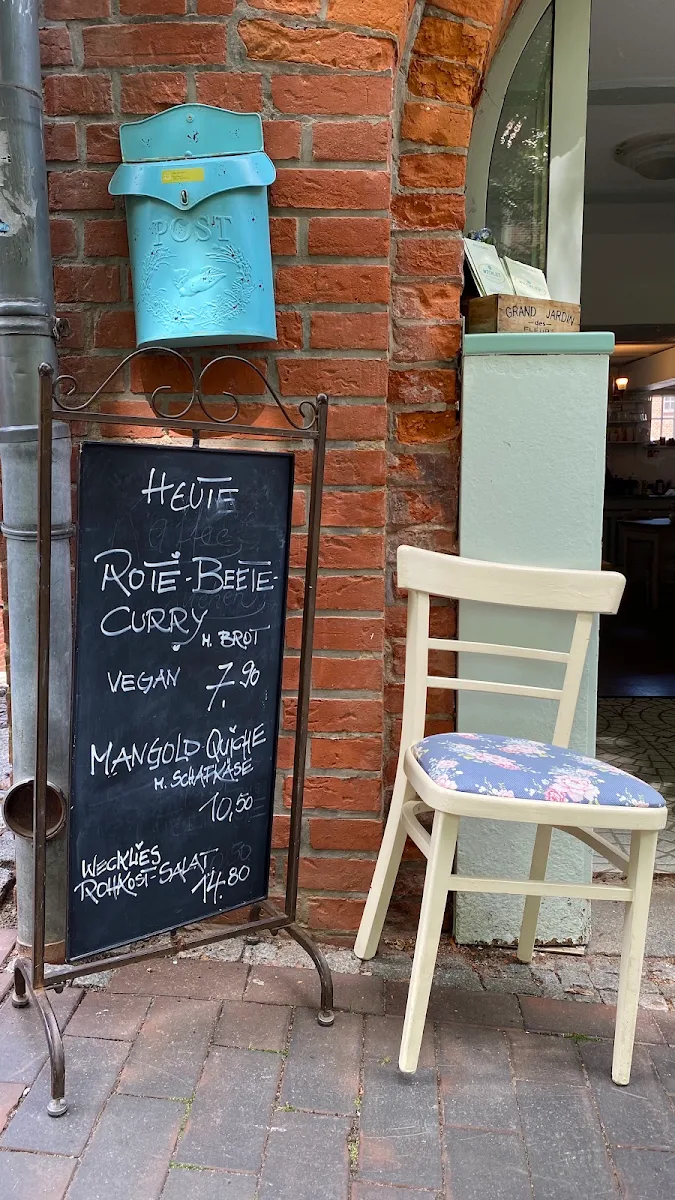 POST
GRAND JARDIN
des
FLEURS
HEUTE
ROTE-BEETE-
CURRY M. BROT
VEGAN 7.90
MANGOLD-QUICHE
M. SCHAFKÄSE
10,50
WECKLIES
ROHKOST-SALAT 14.80